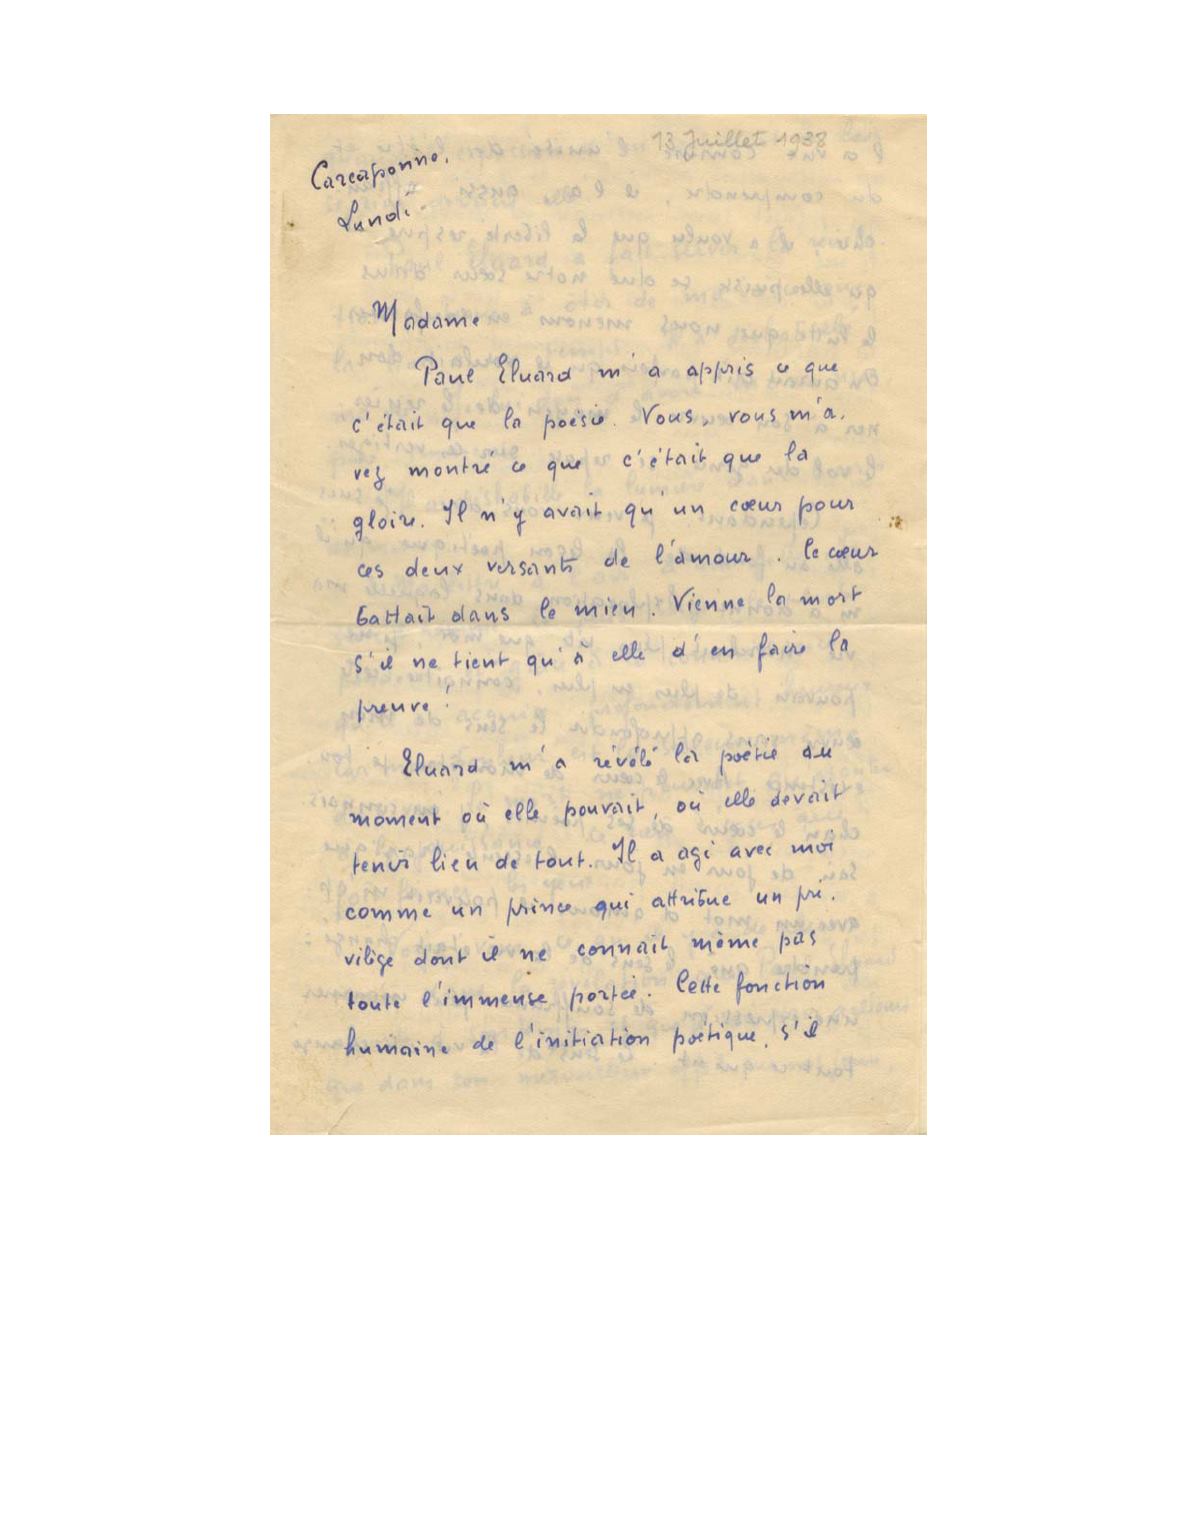 13 Juillet 1938
Carcaponne.
Lundi.
Madame
Paul Eluard m'a appris ce que
c'était que la poésie. Vous, vous m'a.
vez montré ce que c'était que la
gloire. Il n'y avait qu'un cœur pour
ces deux versants de l'amour. Ce cœur
battait dans le mien. Vienne la mort
s'il ne tient qu'à elle d'en faire la
preuve!
Eluard m'a révélé la poésie au
moment où elle pouvait, où elle devait
tenir lieu de tout. Il a agi avec moi
comme un prince qui attribue un pri.
vilège dont il ne connait même pas
toute l'immense portée. Cette fonction
humaine de l'initiation poétique, s'il